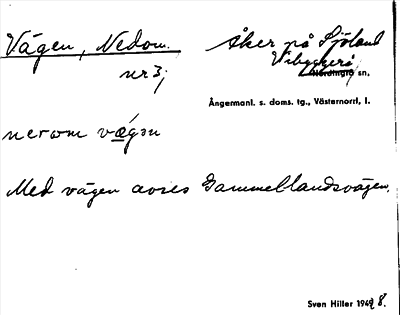 Vägen, Nedom. Åker på Sjöland
nr 3; Vibyggerå
Nordingrå sn.
Ångermanl. s. doms. tg., Västernorrl. l.
nerom vǽgən
Med vägen avses Gammellandsvägen.
Sven Hiller 1948.